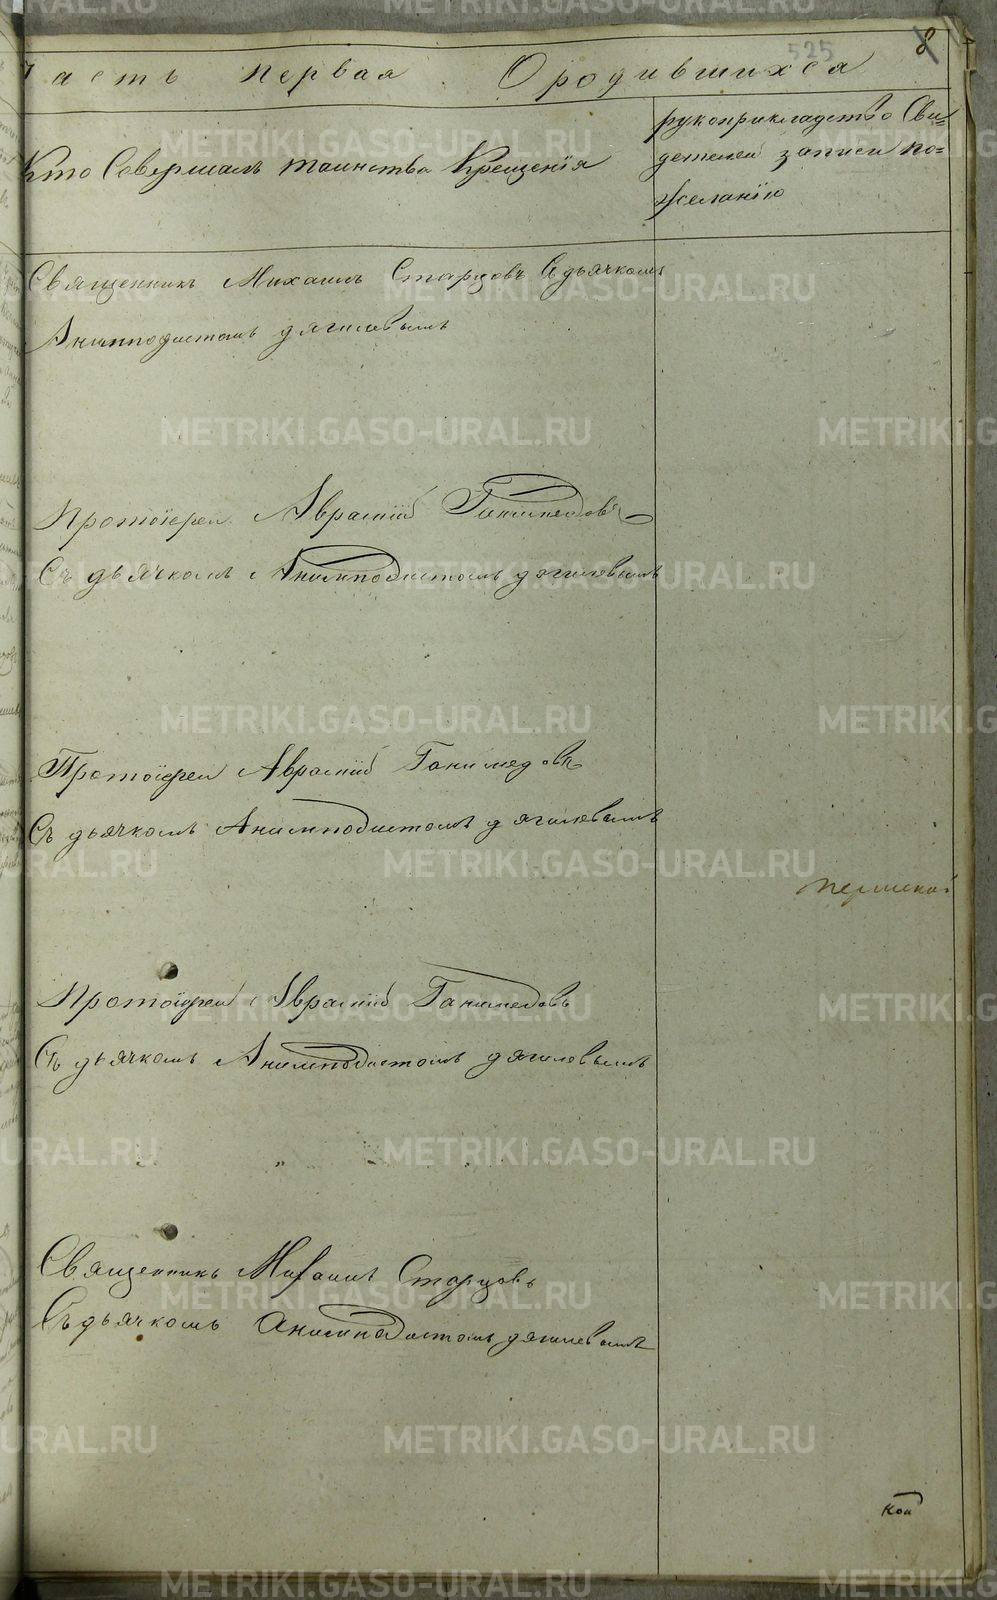 525
8
Часть первая О родившихся
Кто Совершалъ таинство Крещенія
рукоприкладство Сви=
детелей записи по=
желанію
Священникъ Михаилъ Старцовъ Сдьячкомъ
Анимподистомъ дягилевымъ
Протоіерей Аврамій Ганимедовъ
Съ дьячкомъ Анимподистомъ дягилевымъ
Протоіерей Аврамій Ганимедовъ
Съ дьячкомъ Анимподистомъ дягилевымъ
пермской
Протоіерей Аврамій Ганимедовъ
Съ дьячкомъ Анимподистомъ дягилевымъ
Священникъ Михаилъ Старцовъ
Съ дьячкомъ Анимподистомъ дягилевымъ
Кон
METRIKI.GASO-URAL.RU